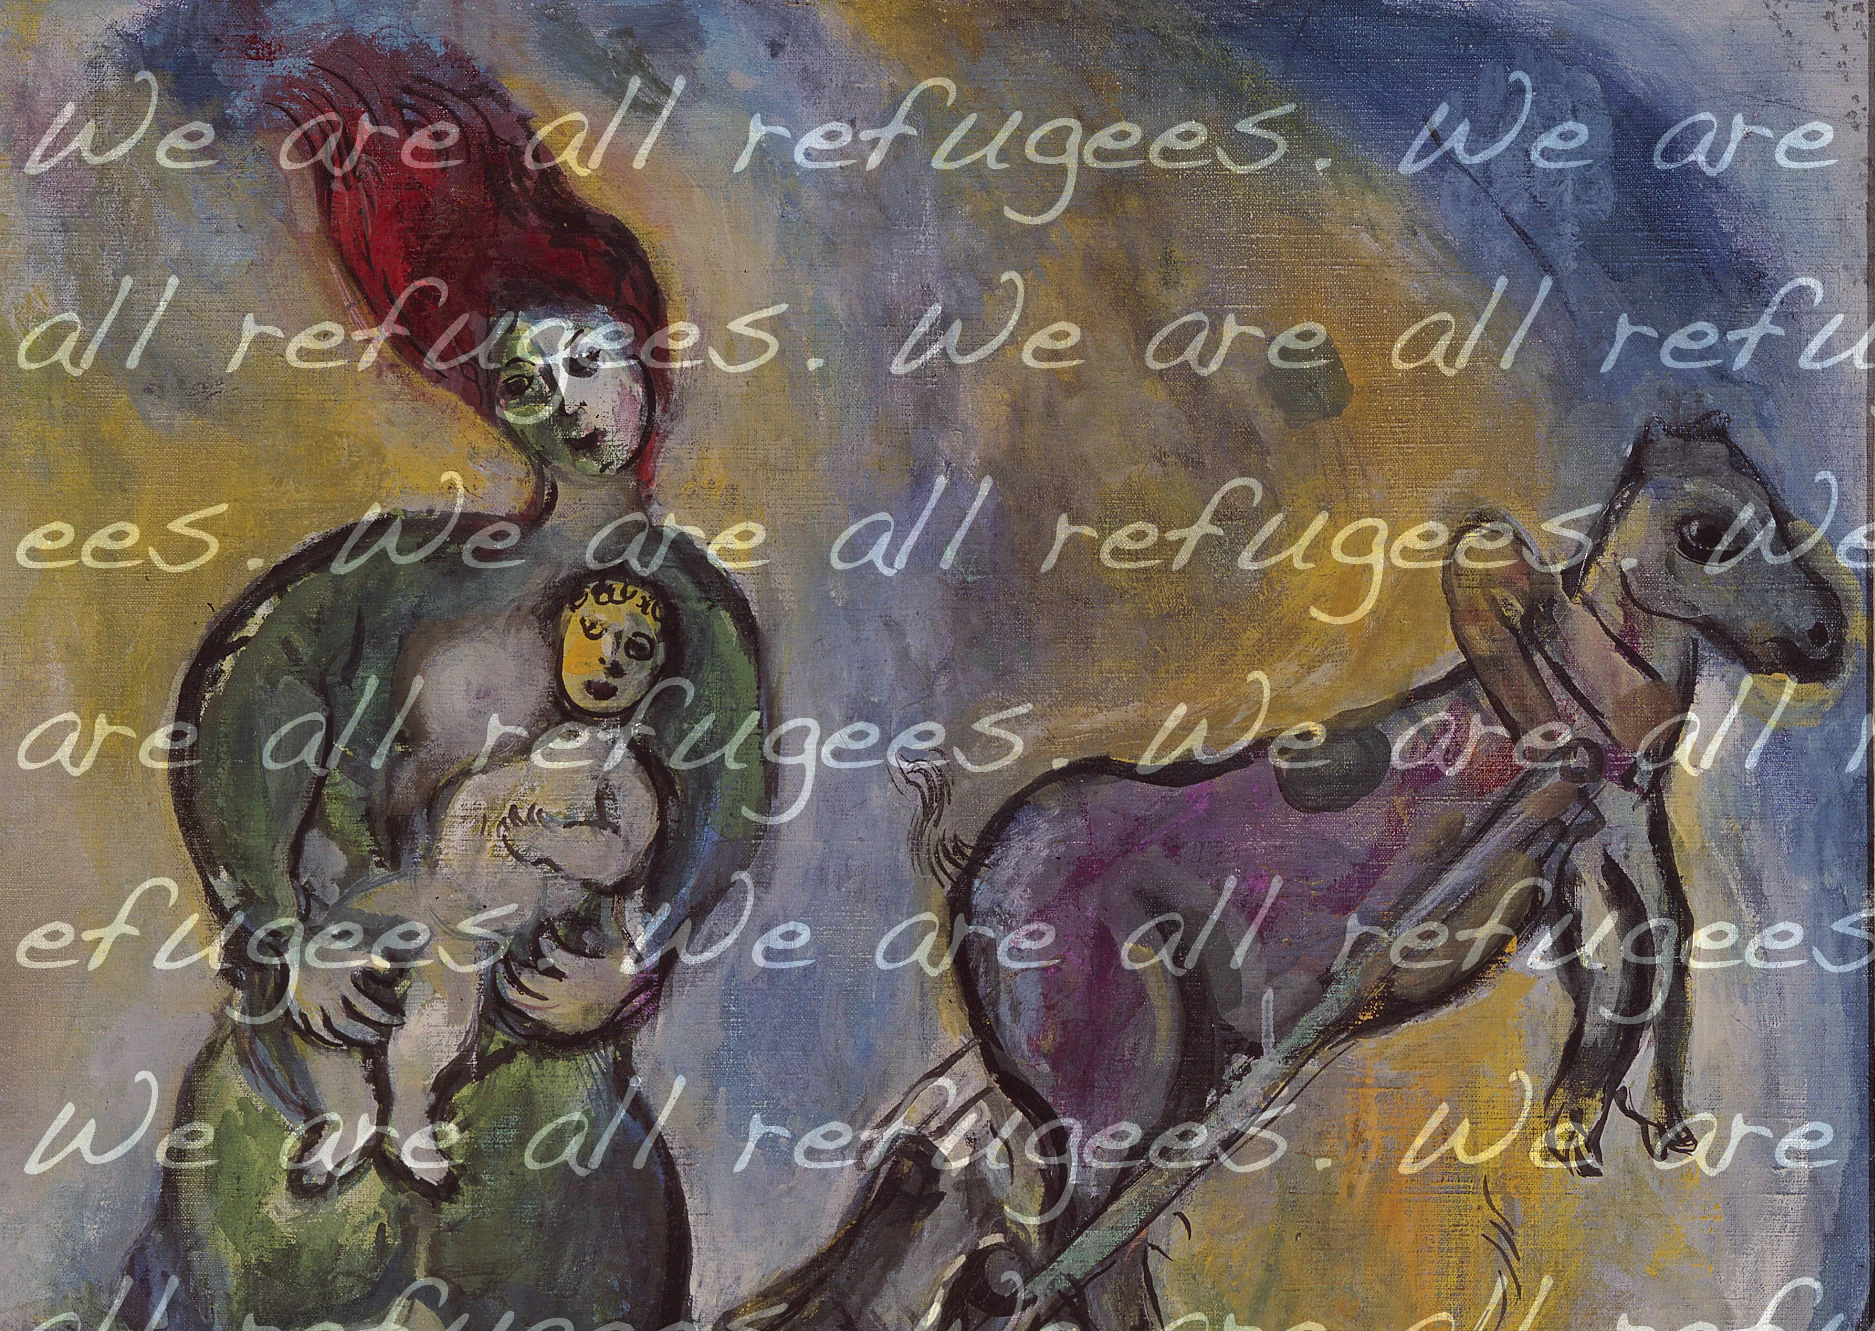 We are all refugees. We are
all refugees. We are all refu
ees. We are all refugees. We
are all refugees. We are all r
efugees. We are all refugees
We are all refugees. We are
all refugees. We are all refu